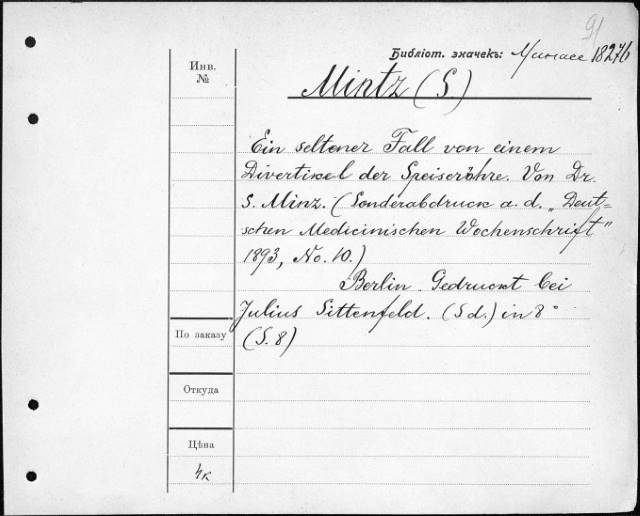 91
Библіот. значекъ: Минасе 18276
Инв.
№
Mintz (S.)
Ein seltener Fall von einem
Divertikel der Speiseröhre. Von Dr.
S. Minz. (Sonderabdruck a. d. „Deut-
schen Medicinischen Wochenschrift"
1893, No. 10.)
Berlin. Gedruckt bei
Julius Sittenfeld. (S d.) in 8°
(S. 8)
По заказу
Откуда
Цѣна
4к